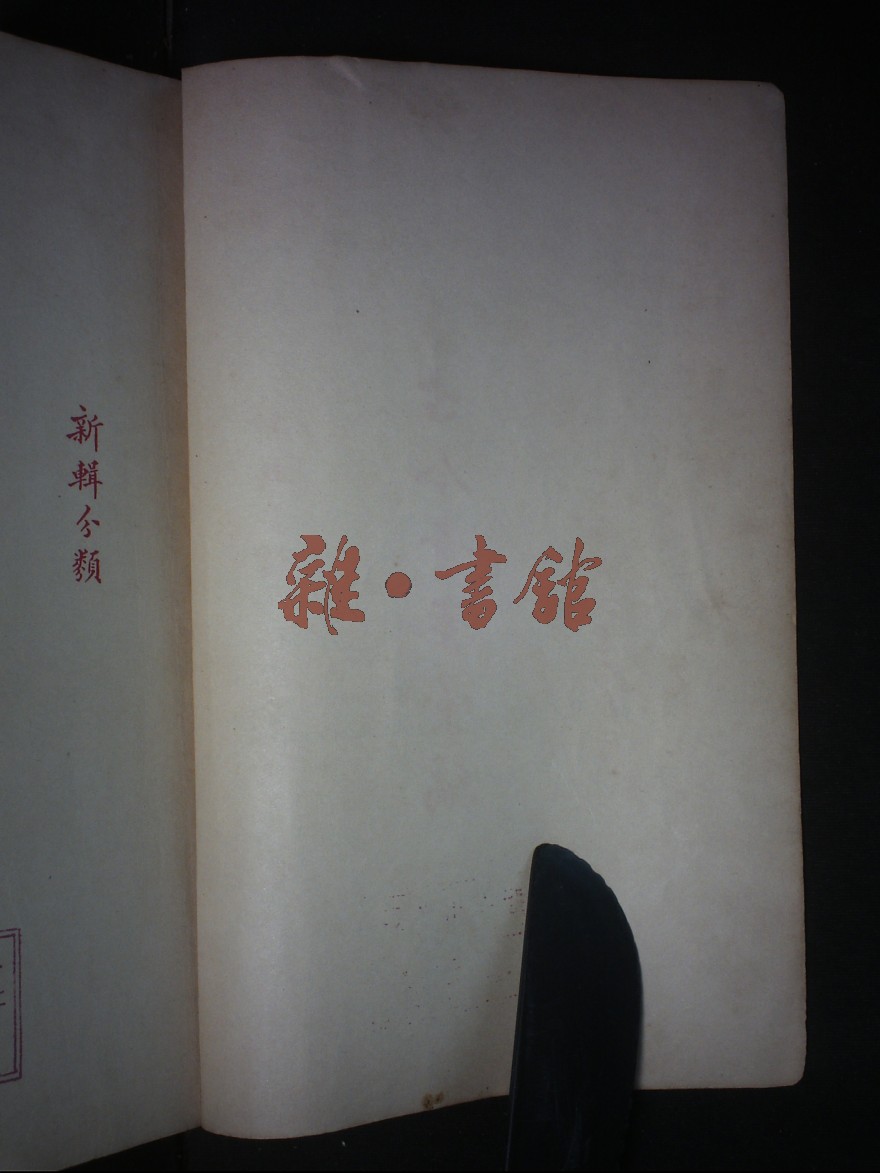 新輯分類
雜·書舘